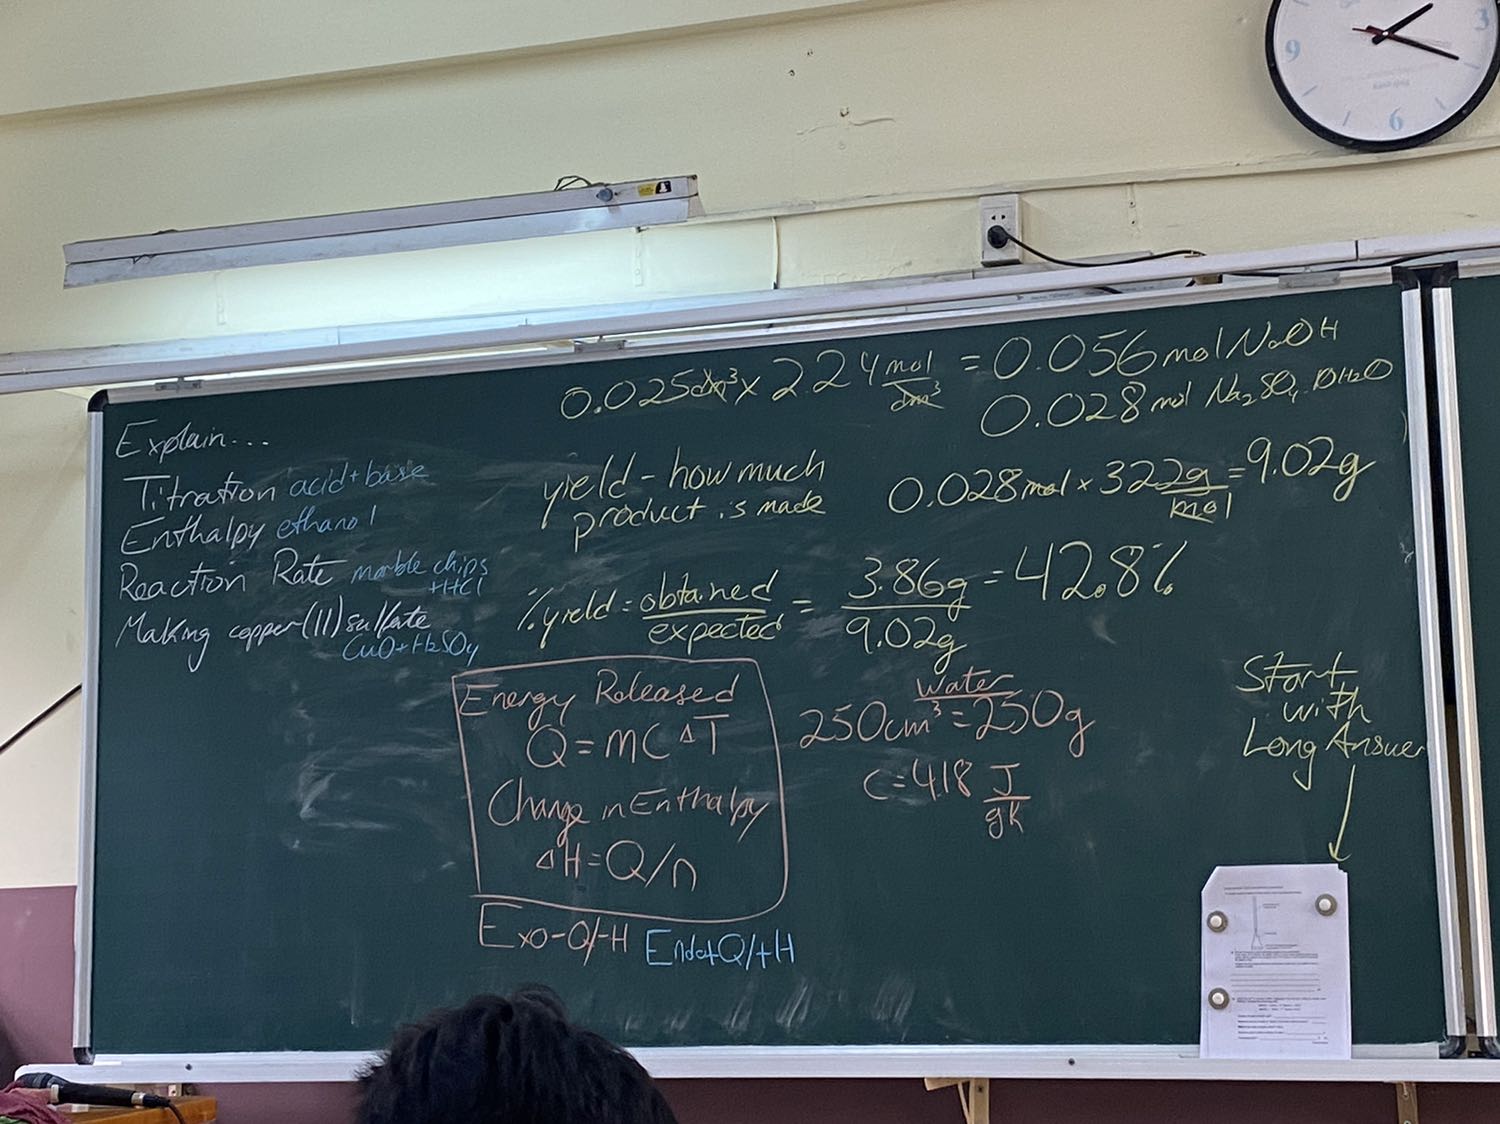 Explain...
Titration acid+base
Enthalpy ethanol
Reaction Rate marble chips
+HCl
Making copper(II) sulfate
CuO+H2SO4
0.025dm³ x 2.24 mol/dm³ = 0.056 mol NaOH
0.028 mol Na2SO4·10H2O
yield - how much
product is made
0.028 mol x 322g/mol = 9.02g
% yield = obtained/expected = 3.86g/9.02g = 42.8%
Energy Released
Q=mCΔT
Change in Enthalpy
ΔH=Q/n
Exo-Q/-H Endo+Q/+H
water
250cm³=250g
C=4.18 J/gK
Start
with
Long Answer
3
6
9